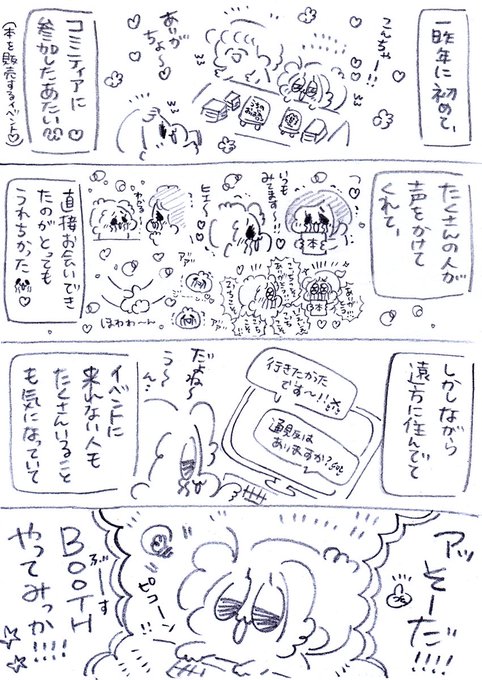 一昨年に初めて、
こんちゃー!!
あいが
ちょ〜
コミティアに
参加したあたい
(本を販売するイベント)
たくさんの人が
声をかけて
くれて、
いつも
みてます〜!!
本
ヒェ〜
わかる
直接お会いでき
たのがとっても
うれちかった
アァ
アァ
ほわわ〜ん
しかしながら
遠方に住んでて
行きたかった
です〜!!
通販は
ありますか?
だよね〜
う〜
ん…
イベントに
来れない人も
たくさんいること
も気になっていて
アッ
そーだ!!!!
ピコーン!!
ぶーす
BOOTH
やってみっか!!!!